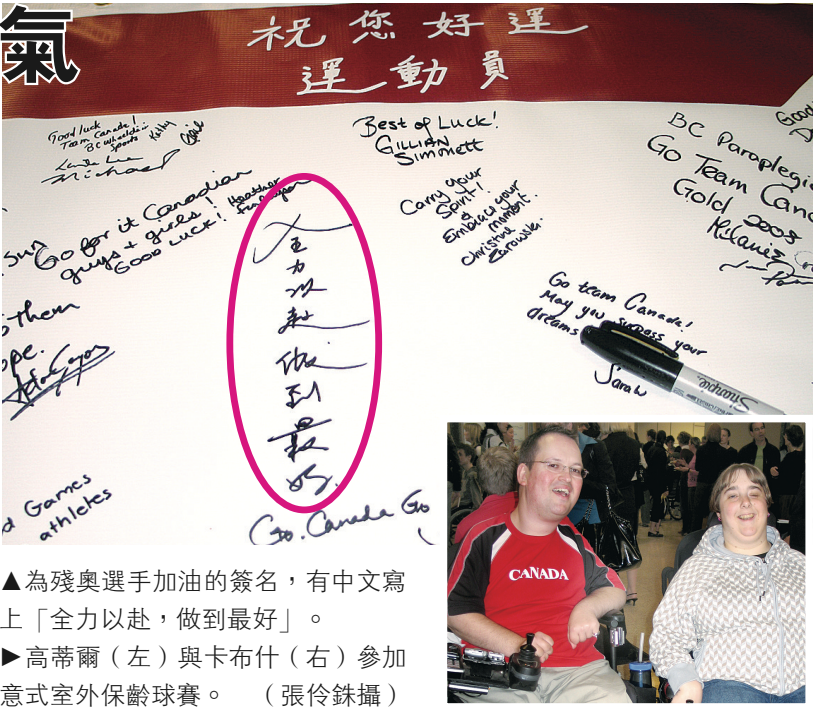 氣
祝您好運
運動員
Good luck
Team Canada!
BC Wheelchair
Sports
Kathy
Michael
Best of Luck!
GILLIAN
Simmett
BC Paraplegi
Go Team Can
Gold 2008
Go for it Canadian
guys + girls!
GOOD LUCK!
Heather
Sun
Carry your
Spirit!
&
Embrace your
moment.
Christina
全力以赴做到最好
Them
ope.
Go team Canada!
May you surpass your
dreams
Sarah
Sharpie
d Games
athletes
Go. Canada Go
CANADA
▲為殘奧選手加油的簽名，有中文寫
上「全力以赴，做到最好」。
▶高蒂爾（左）與卡布什（右）參加
意式室外保齡球賽。　（張伶銖攝）